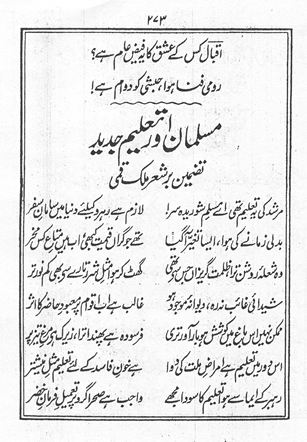 ۲۷۳
اقبال کس کے عشق کا یہ فیض عام ہے؟
رومی فنا ہوا، حبشی کو دوام ہے!
مسلمان اور تعلیم جدید
تضمین بر شعر ملک قمی
مرشد کی تعلیم تھی اے مسلم شوریدہ سر! لازم ہے رہرو کیلئے دنیا میں سامان سفر
بدلی زمانے کی ہوا، ایسا تغیر آ گیا تھے جو گراں قیمت کبھی، اب ہیں متاع کس مخر
وہ شعلۂ روشن ترا، ظلمت گریزاں جس سے تھی گھٹ کر ہوا مثل شرر تارے سے بھی کم نور تر
شیدائی غائب نہ رہ، دیوانۂ موجود ہو غالب ہے اب اقوام پر معبود حاضر کا اثر
ممکن نہیں اس باغ میں کوشش ہو بارآور تری فرسودہ ہے پھندا ترا، زیرک ہے مرغ تیز پر
اس دور میں تعلیم ہے امراض ملت کی دوا ہے خون فاسد کے لئے تعلیم مثل نیشتر
رہبر کے ایما سے ہوا تعلیم کا سودا مجھے واجب ہے صحرا گرد پر تعمیل فرمان خضر